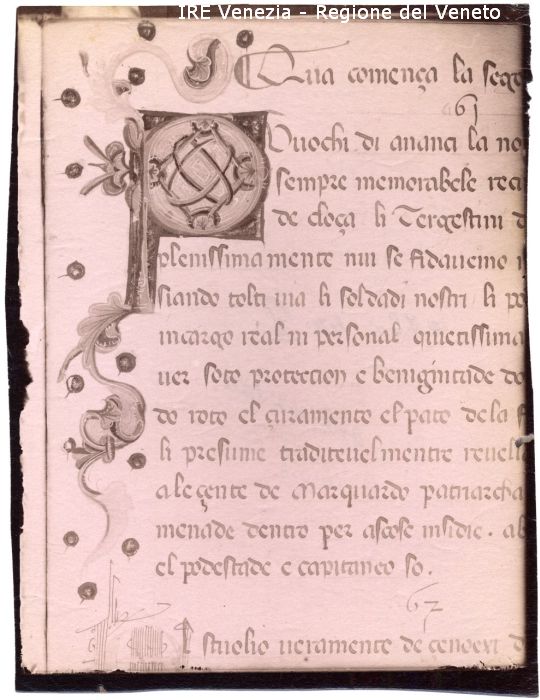 IRE Venezia - Regione del Veneto
Qua comença la sego
61
Puochi di ananci la no
sempre memorabele reci
de cloça li Tergestini d
plenissima mente nui se fidauemo i
siando tolti uia li soldadi nostri li po
incargo real ni personal quietissima
uer soto protection e benignitade do
do roto el çuramento el pato de la f
li presume traditeuelmentre reuella
a le çente de Marquardo patriarcha
menade dentro per ascose insidie. ab
el podestade e capitaneo so.
67
l stuolio ueramente de cenoexi d